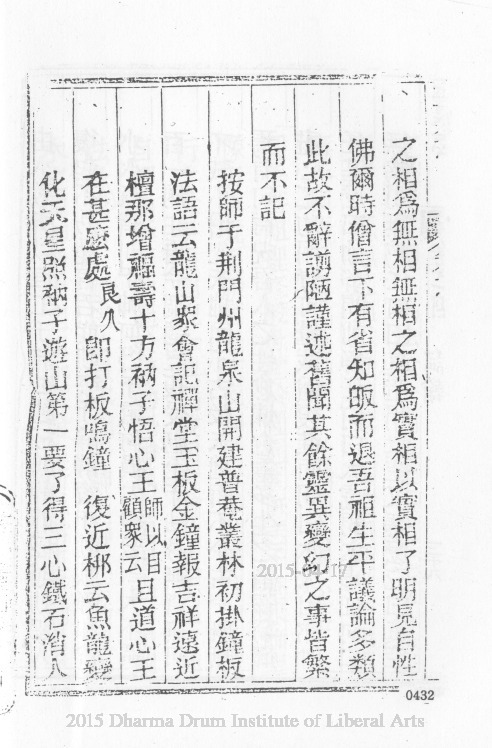 之相為無相無相之相為實相以實相了明見自性
佛爾時僧言下有省知皈而退吾祖生平議論多類
此故不辭謭陋謹述舊聞其餘靈異變幻之事皆繁
而不記
按師于荆門州龍泉山開建普菴叢林初掛鐘板
法語云龍山衆會記禪堂玉板金鐘報吉祥遠近
檀那增福壽十方衲子悟心王師以目顧衆云且道心王
在甚麽處良久卽打板鳴鐘 復近梆云魚龍變
化天星照衲子遊山第一要了得三心鐵石消人
2015-
0432
2015 Dharma Drum Institute of Liberal Arts